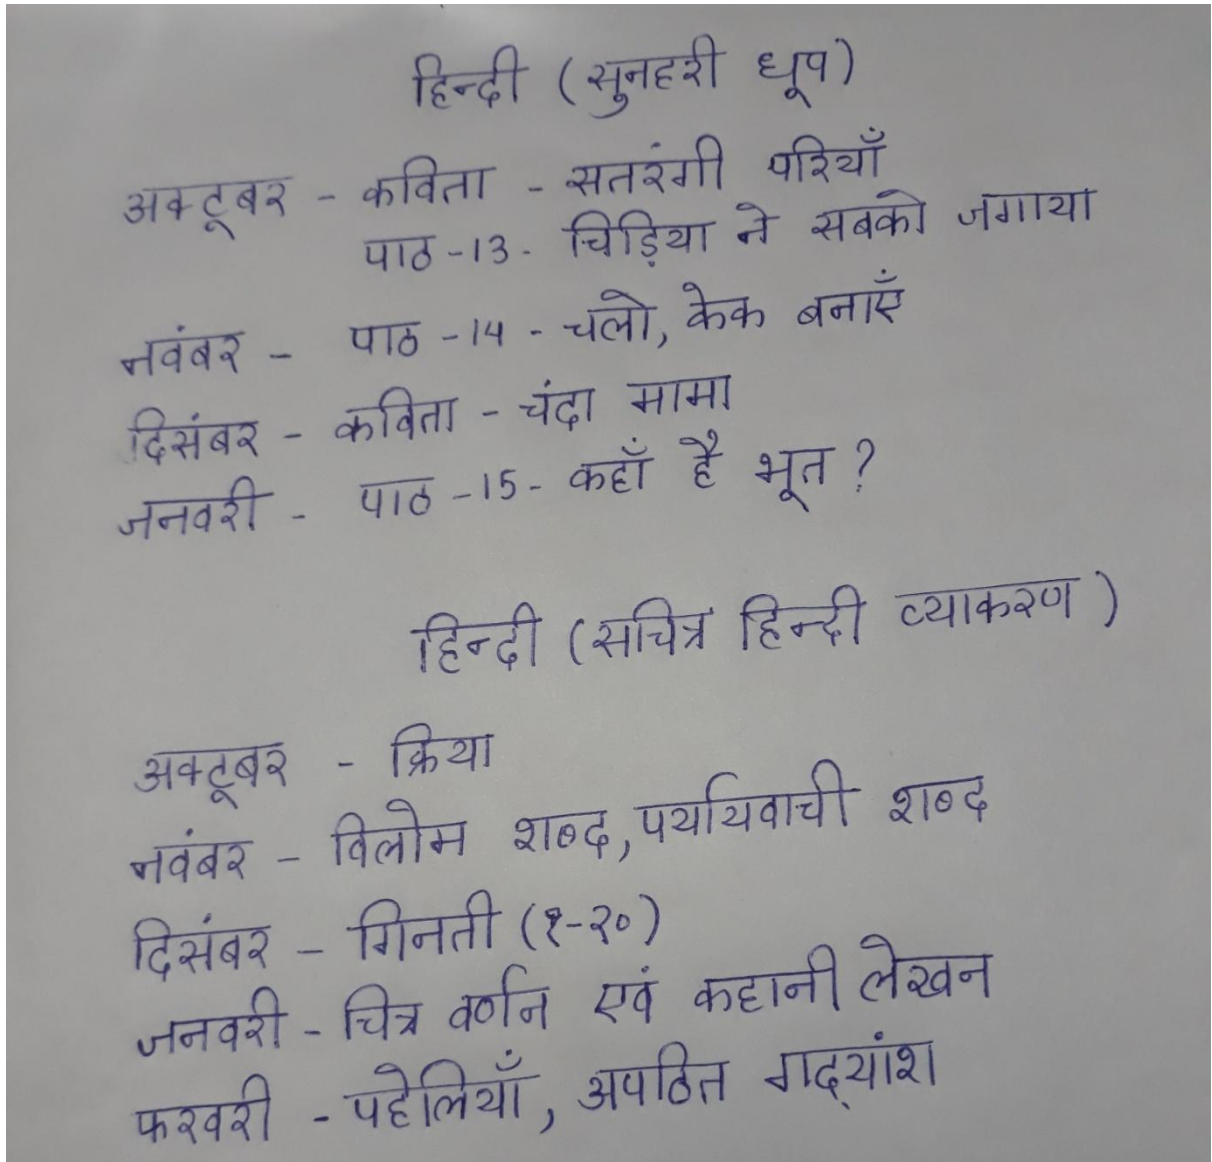 हिन्दी (सुनहरी धूप)
अक्टूबर - कविता - सतरंगी परियाँ
पाठ -13- चिड़िया ने सबको जगाया
नवंबर - पाठ -14 - चलो, केक बनाएँ
दिसंबर - कविता - चंदा मामा
जनवरी - पाठ -15- कहाँ है भूत ?
हिन्दी (सचित्र हिन्दी व्याकरण)
अक्टूबर - क्रिया
नवंबर - विलोम शब्द, पर्यायवाची शब्द
दिसंबर - गिनती (१-२०)
जनवरी - चित्र वर्णन एवं कहानी लेखन
फरवरी - पहेलियाँ, अपठित गद्यांश